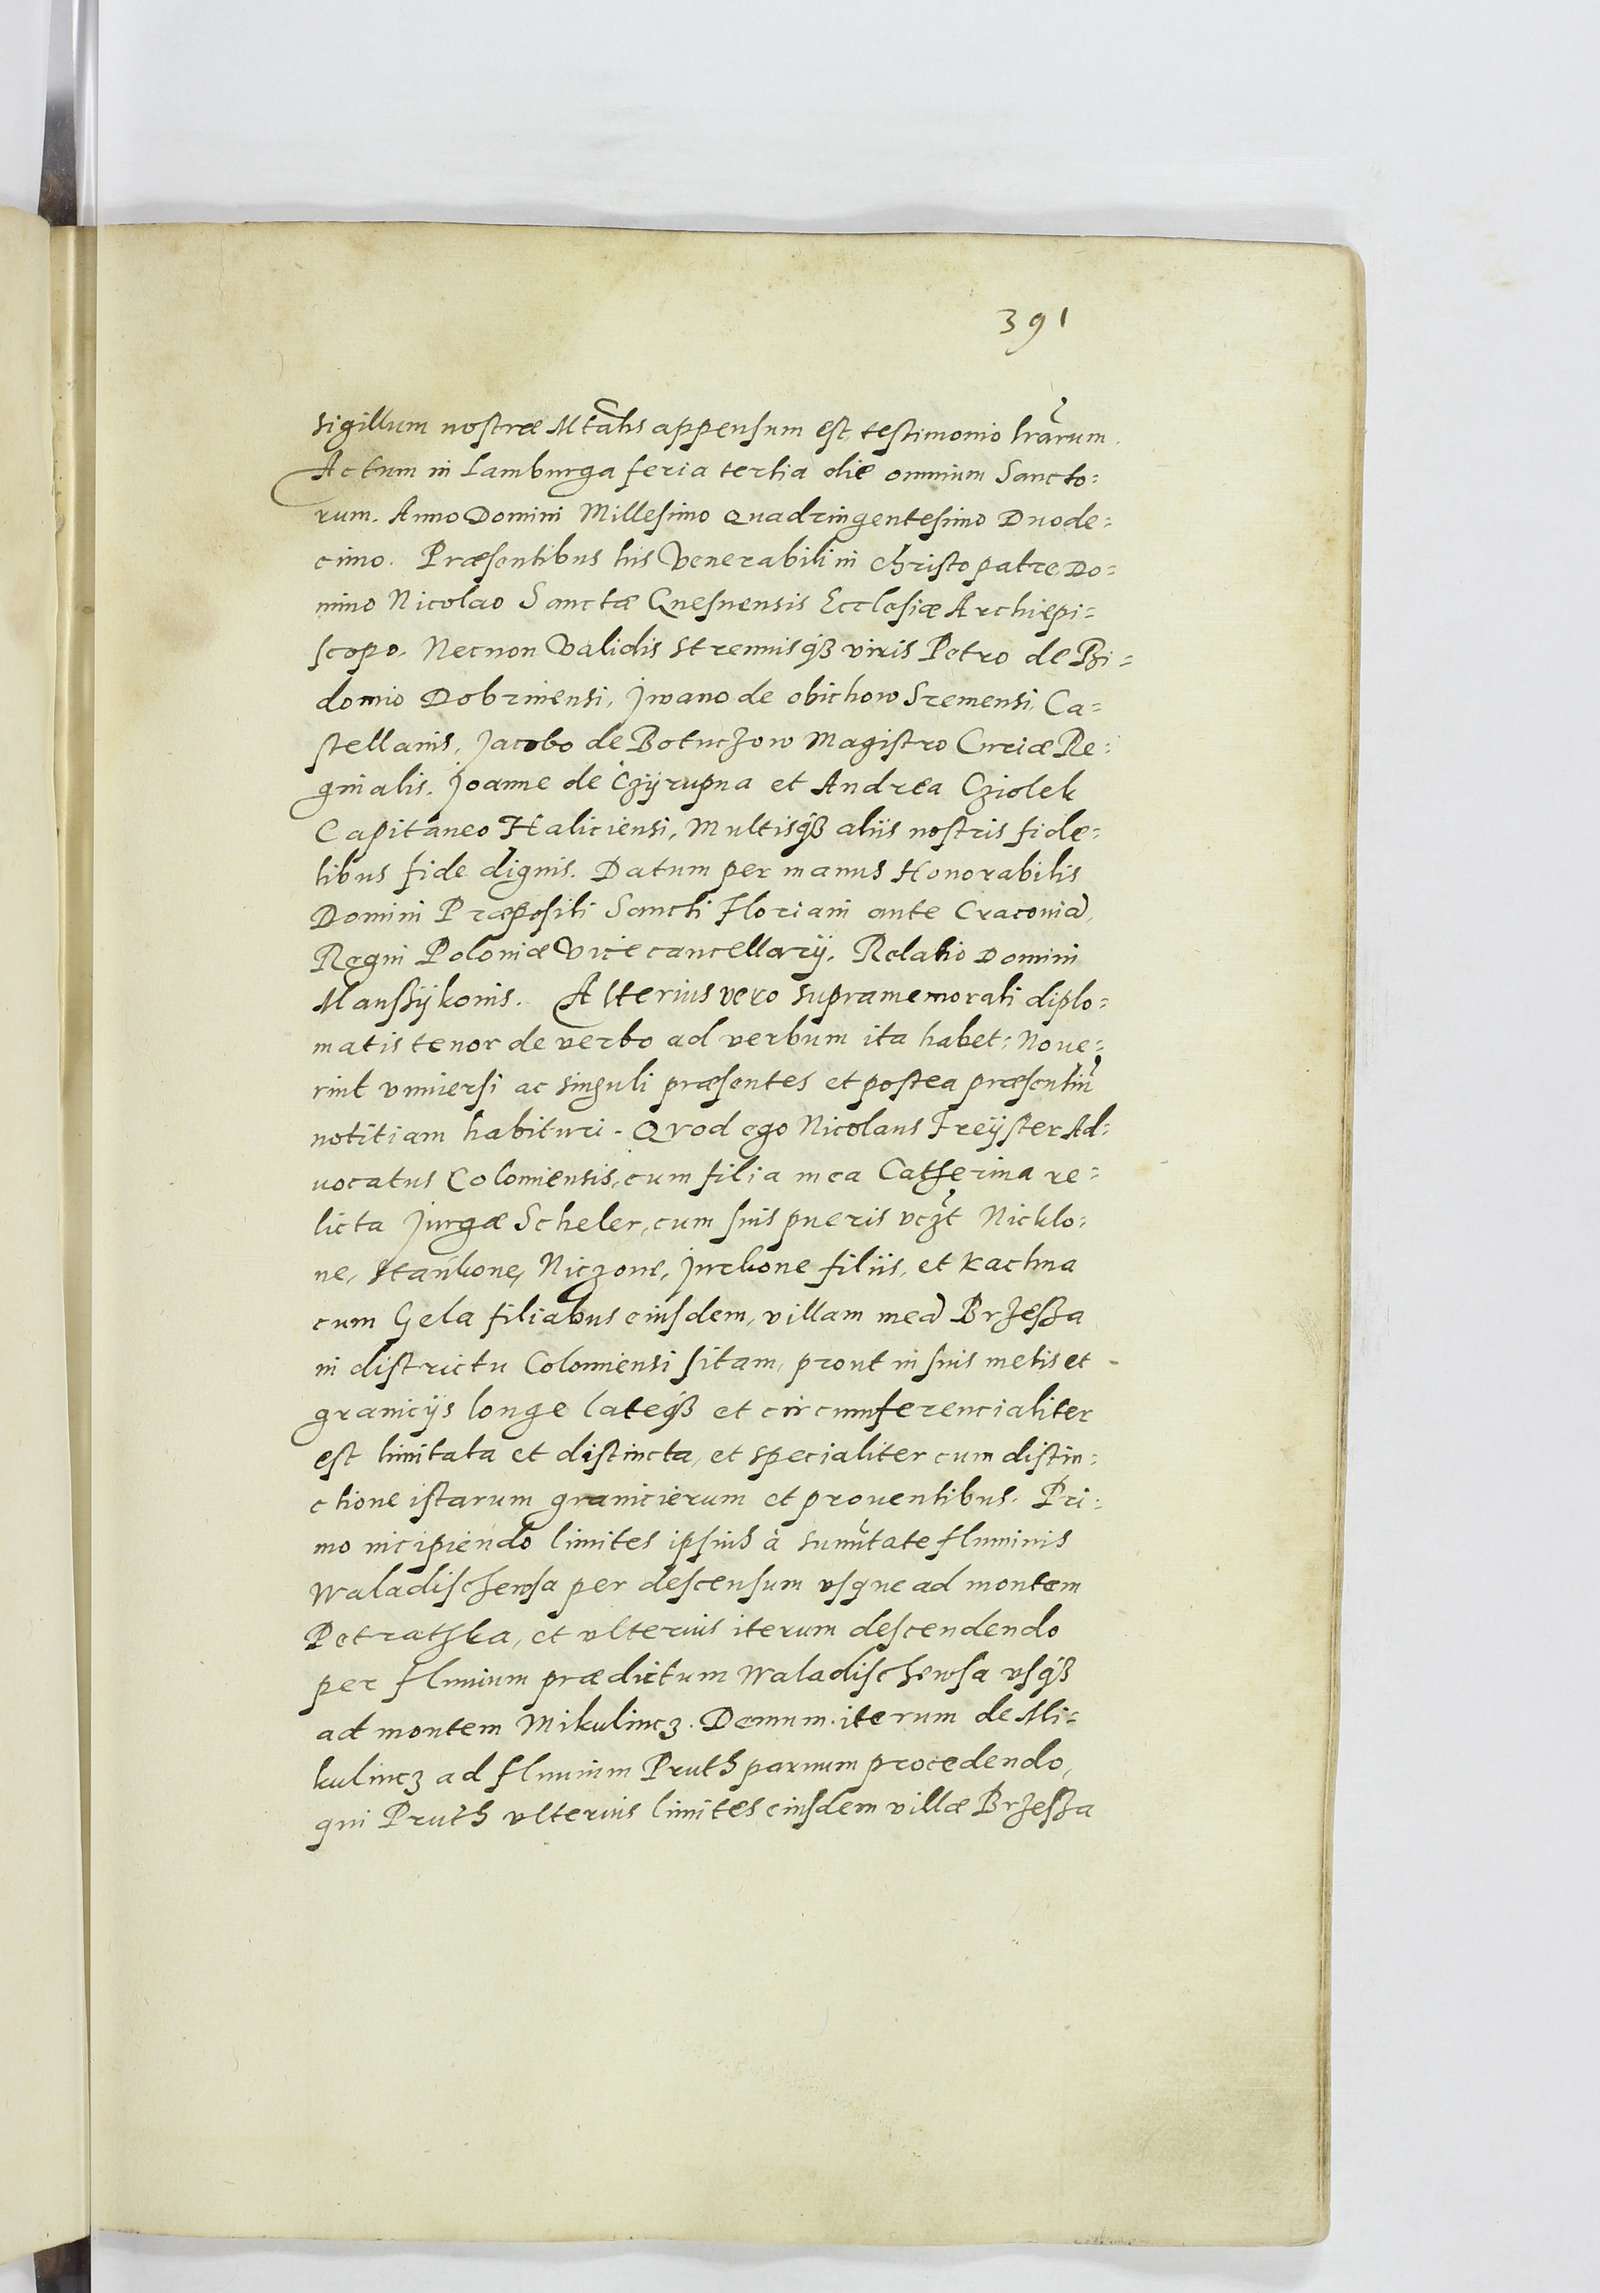 391
sigillum nostræ Mtatis appensum est testimonio lrarum.
Actum in Lamburga feria tertia die omnium Sancto=
rum. Anno Domini Millesimo Quadringentesimo Duode=
cimo. Præsentibus his Venerabili in christo patre Do=
mino Nicolao Sanctæ Gnesnensis Ecclesiæ Archiepi=
scopo. Necnon Validis strenuisqß viris Petro de Bi=
domio Dobrinensi, Jwano de obichow Sremensi, Ca=
stellanis, Jacobo de Botuczow Magistro Curiæ Re=
ginalis. Joanne de Czÿrupna et Andrea Cziolek
Capitaneo Haliciensi, Multisqß aliis nostris fide=
libus fide dignis. Datum per manus Honorabilis
Domini Præpositi Sancti Floriani ante Cracoviã,
Regni Poloniæ Vicecancellarÿ. Relatio Domini
Manssÿkonis. Alterius vero supramemorati diplo=
matis tenor de verbo ad verbum ita habet: Noue=
rint vniuersi ac singuli præsentes et postea præsentiũ
notitiam habituri. Qvod ego Nicolaus Freÿster Ad=
uocatus Colomiensis, cum filia mea Catherina re=
licta Jurgæ Scheler, cum suis pueris vczt Nicklo=
ne, Stankone, Niczone, Jurkone filiis, et Kachna
cum Gela filiabus eiusdem, villam meã Brzesza
in districtu Colomiensi sitam, prout in suis metis et
granicÿs longe lateqß et circumferencialiter
est limitata et distincta, et specialiter cum distin=
ctione istarum granicierum et prouentibus. Pri=
mo incipiendo limites ipsius à sumitate fluminis
Waladischewsa per descensum vsque ad montem
Petrathka, et vlterius iterum descendendo
per fluuium prædictum Waladischewsa vsqß
ad montem Mikulincz. Demum iterum de Mi=
kulincz ad fluuium Pruth parum procedendo,
qui Pruth vlterius limites eiusdem villæ Brzesza